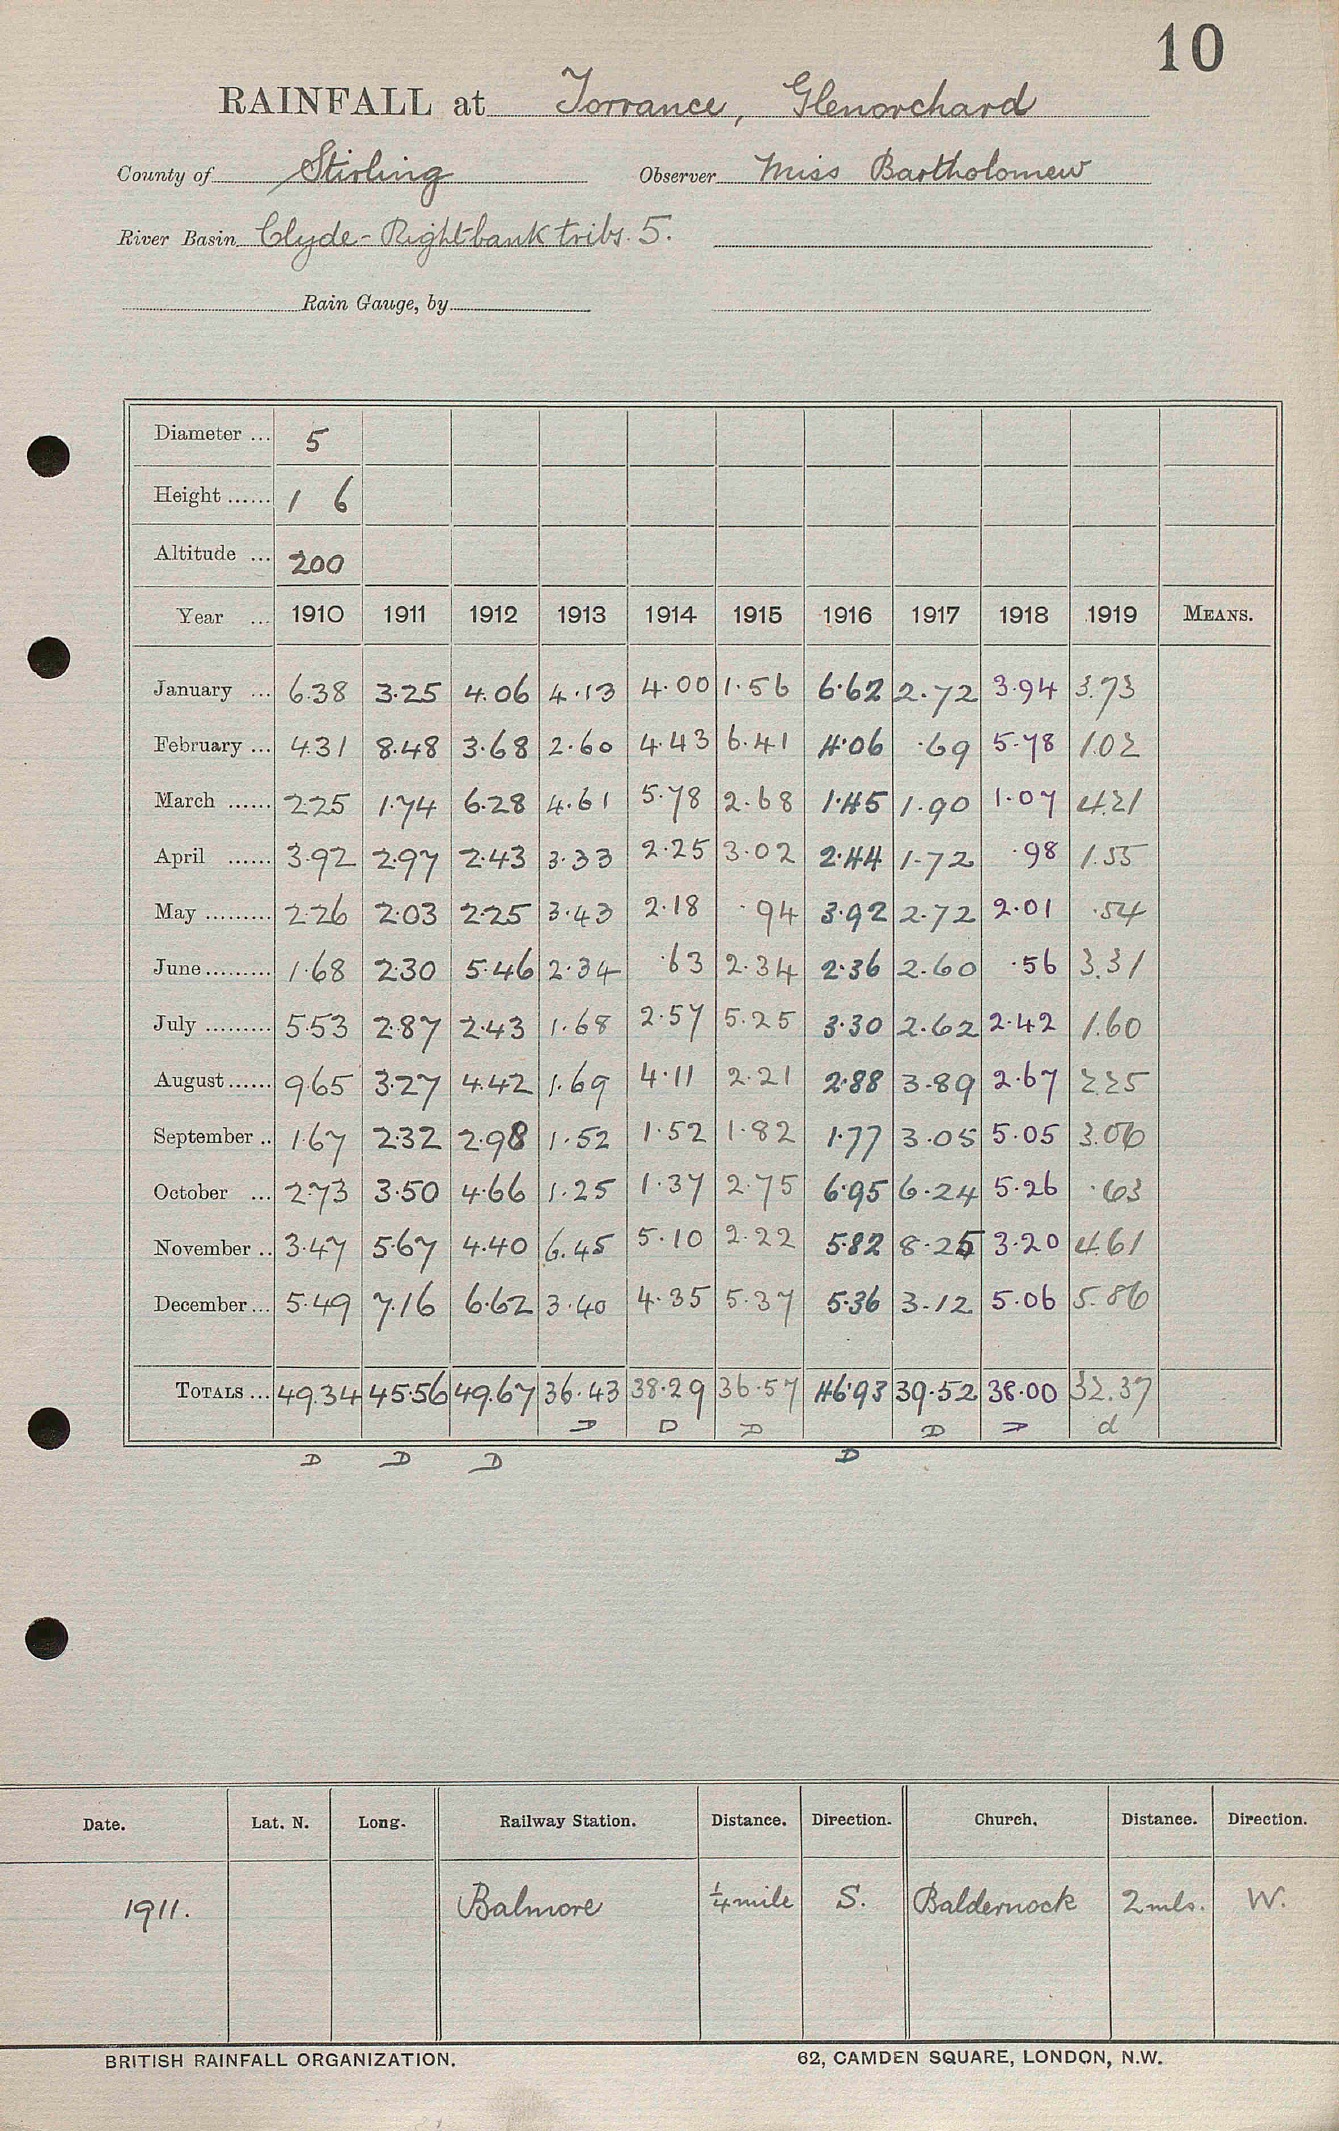 10
RAINFALL at Torrance, Glenorchard
County of Stirling Observer Miss Bartholomew
River Basin Clyde - Right bank tribs. 5.
Rain Gauge, by
Diameter ... 5
Height ...... 1 6
Altitude ... 200
Year ... 1910 1911 1912 1913 1914 1915 1916 1917 1918 1919 MEANS.
January ... 6.38 3.25 4.06 4.13 4.00 1.56 6.62 2.72 3.94 3.73
February ... 4.31 8.48 3.68 2.60 4.43 6.41 4.06 .69 5.78 1.02
March ...... 2.25 1.74 6.28 4.61 5.78 2.68 1.45 1.90 1.07 4.21
April ...... 3.92 2.97 2.43 3.33 2.25 3.02 2.44 1.72 .98 1.55
May ......... 2.26 2.03 2.25 3.43 2.18 .94 3.92 2.72 2.01 .54
June ......... 1.68 2.30 5.46 2.34 .63 2.34 2.36 2.60 .56 3.31
July ......... 5.53 2.87 2.43 1.68 2.57 5.25 3.30 2.62 2.42 1.60
August ...... 9.65 3.27 4.42 1.69 4.11 2.21 2.88 3.89 2.67 2.25
September .. 1.67 2.32 2.98 1.52 1.52 1.82 1.77 3.05 5.05 3.06
October ... 2.73 3.50 4.66 1.25 1.37 2.75 6.95 6.24 5.26 .63
November .. 3.47 5.67 4.40 6.45 5.10 2.22 5.82 8.25 3.20 4.61
December ... 5.49 7.16 6.62 3.40 4.35 5.37 5.36 3.12 5.06 5.86
TOTALS ... 49.34 45.56 49.67 36.43 38.29 36.57 46.93 39.52 38.00 32.37
D D D D D d
D D D D
Date. Lat. N. Long. Railway Station. Distance. Direction. Church. Distance. Direction.
1911. Balmore 1/4 mile S. Baldernock 2 mls. W.
BRITISH RAINFALL ORGANIZATION. 62, CAMDEN SQUARE, LONDON, N.W.